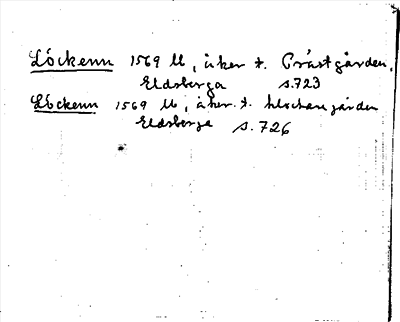 Löckenn 1569 ll, åker t. Prästgården,
Eldsberga s.723
Löckenn 1569 ll, åker. t. klockaregården
Eldsberga s.726